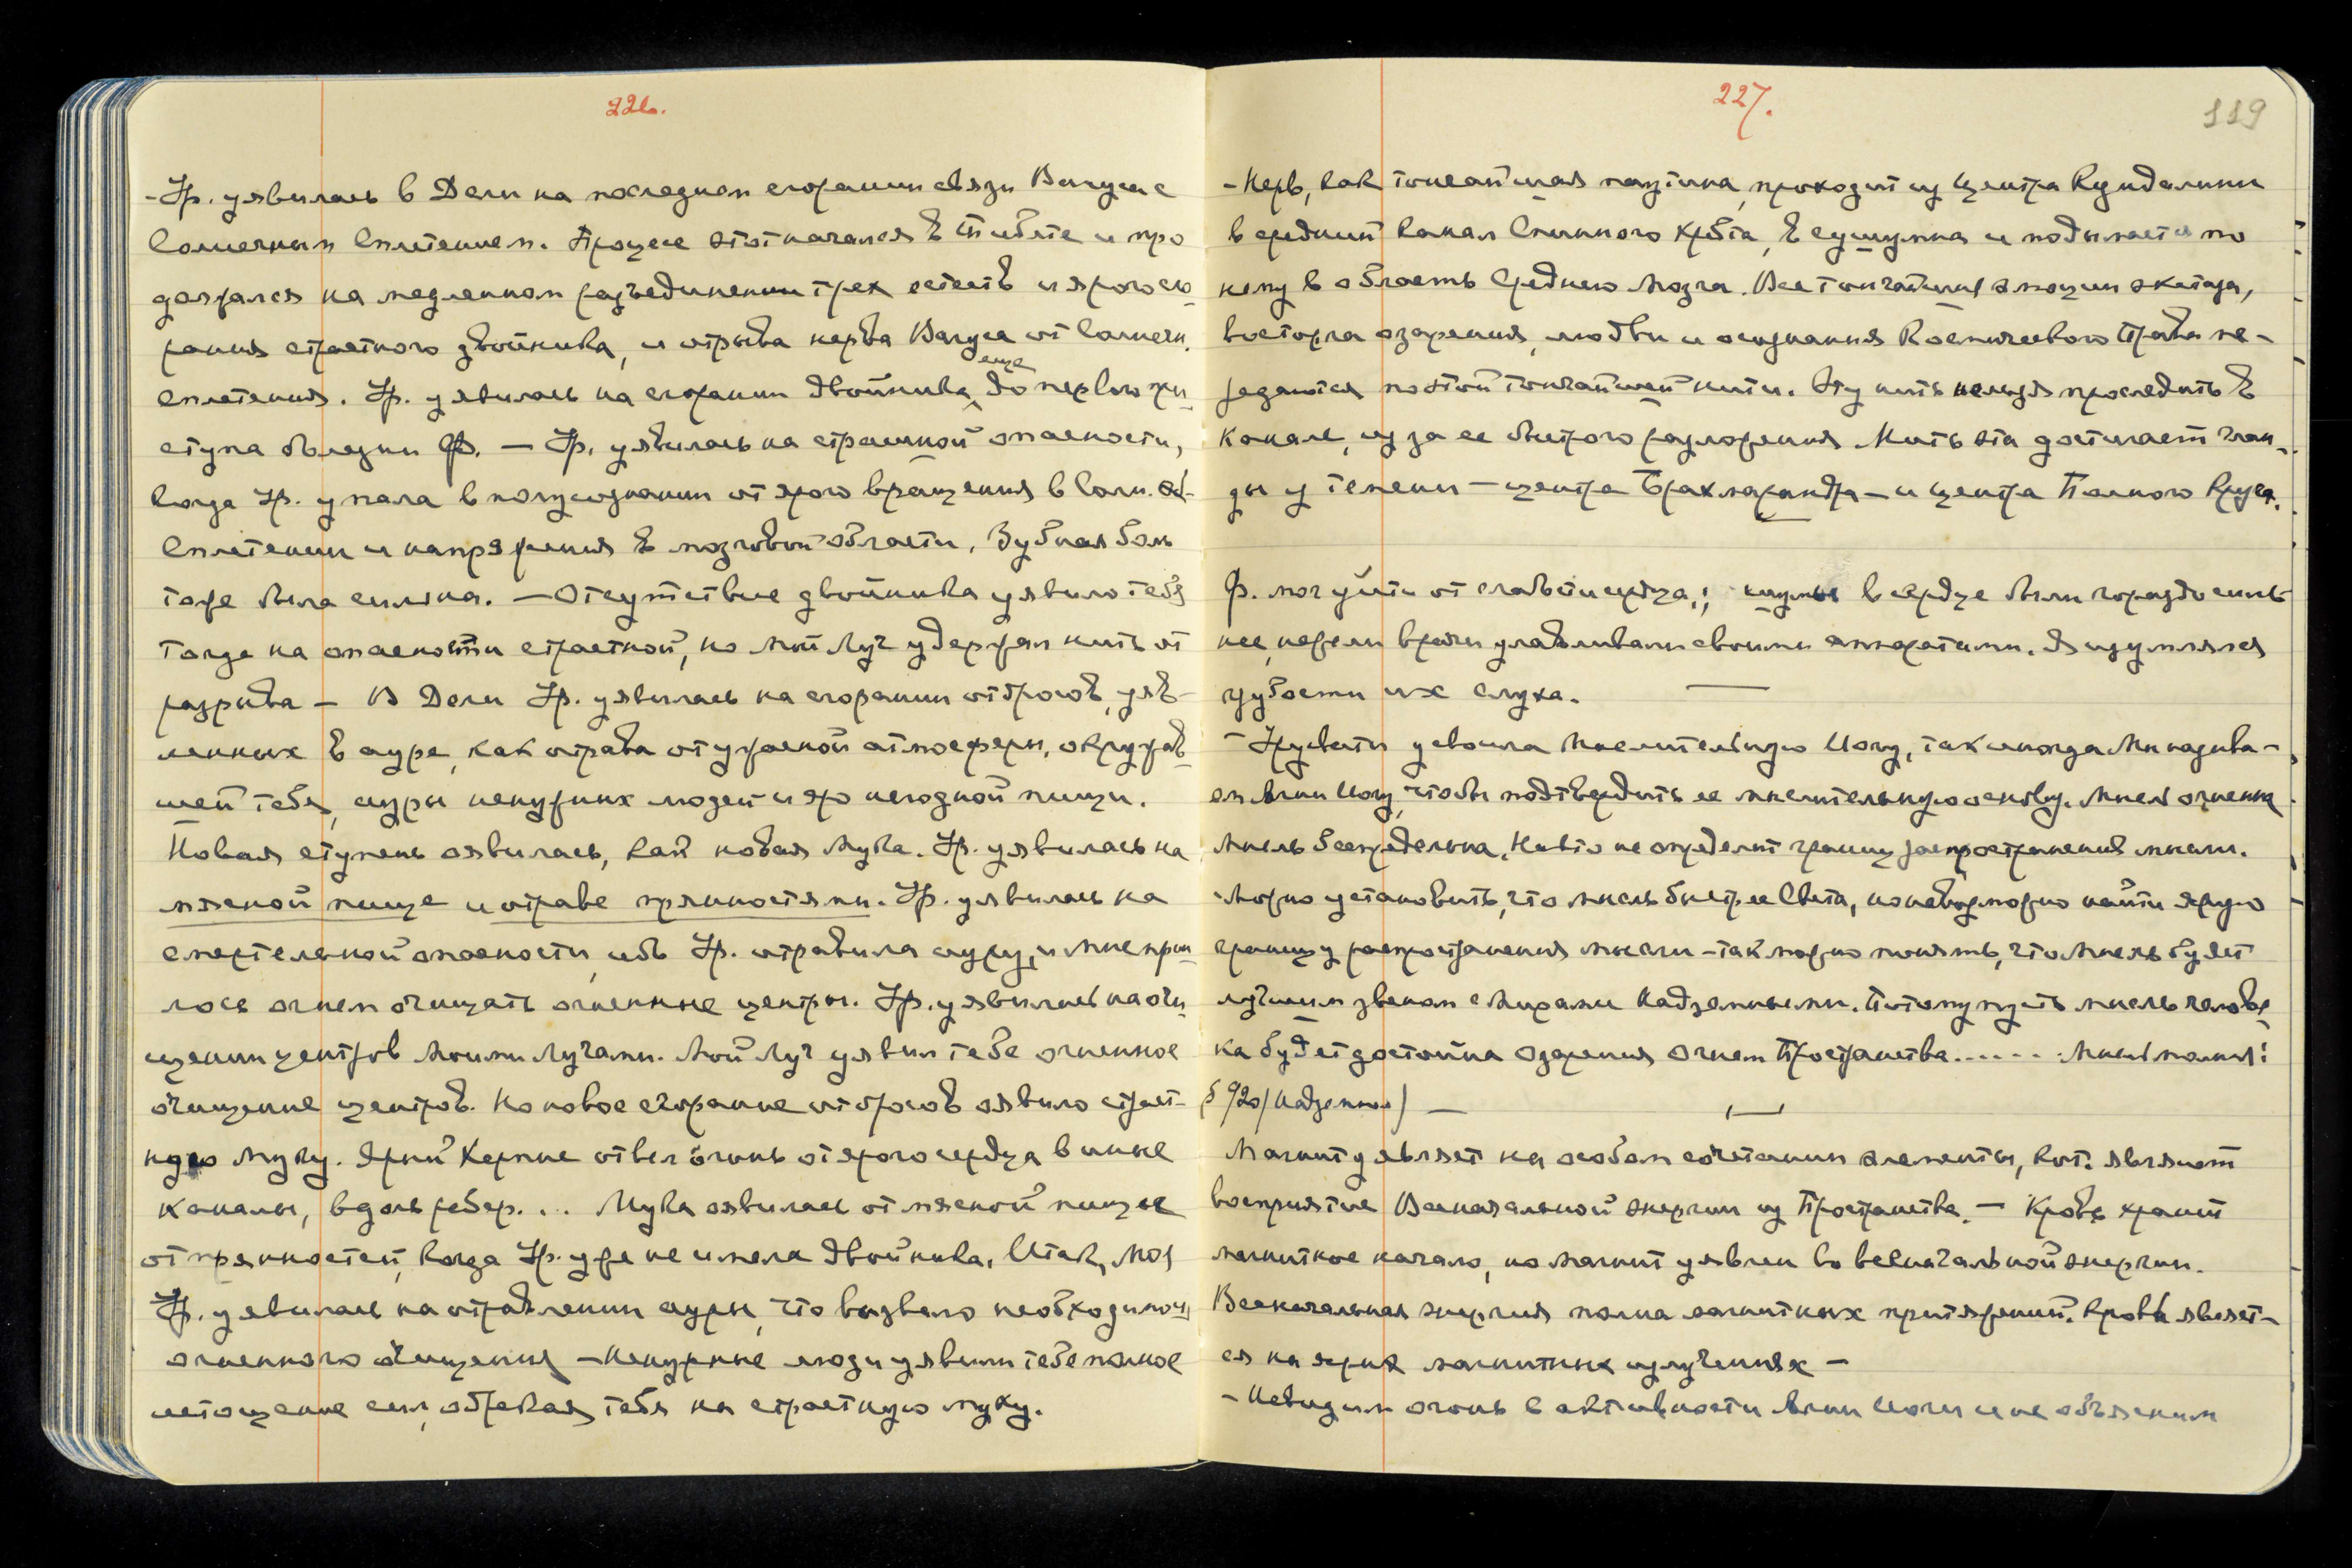 226.
- Ур. уявилась в Дели на последнем сгорании связи Вагуса с
Солнечным Сплетением. Процесс этот начался в Тибете и про
должался на медленном разъединении трех естеств и ярого сго-
рания страстного двойника, и отрыва нерва Вагуса от Солнечн.
сплетения. Ур. уявилась на сгорании двойника еще до первого при-
ступа болезни Ф. — Ур. уявилась на страшной опасности,
когда Ур. упала в полусознании от ярого вращения в Солн.
Сплетении и напряжения в мозговой области. Зубная боль
тоже была сильна. — Отсутствие двойника уявило тебя
тогда на опасности страстной, но Мой Луч удержал нить от
разрыва — В Дели Ур. уявилась на сгорании отбросов, уяв-
ленных в ауре, как отрава от ужасной атмосферы, окружав-
шей тебя, ауры ненужных людей и яро негодной пищи.
Новая ступень оявилась, как новая Мука. Ур. уявилась на
мясной пище и отраве пряностями. Ур. уявилась на
смертельной опасности, ибо Ур. отравила ауру, и Мне приш
лось огнем очищать огненные центры. Ур. уявилась на очи-
щении центров Моими Лучами. Мой Луч уявил тебе огненное
очищение центров. Но новое сгорание отбросов оявило страст-
ную Муку. Ярый Кермие отвел огонь от ярого сердца в иные
каналы, вдоль ребер. ... Мука оявилась от мясной пищи и
от пряностей, когда Ур. уже не имела двойника. Итак, Моя
Ур. уявилась на отравлении ауры, что вызвало необходимость
огненного очищения — Ненужные люди уявили тебе полное
истощение сил, обрекая тебя на страстную муку.
227.
119
- Нерв, как тончайшая паутина, проходит из центра Кундалини
в средний канал Спинного хребта, в сушумна и подымается по
нему в область Среднего Мозга. Все тончайшие эмоции экстаза,
восторга озарения, любви и осознания Космического Права пе-
редаются по этой тончайшей нити. Эту нить нельзя проследить в
канале, из за ее быстрого разложения. Нить эта достигает глан-
ды у темени — центра Брахмарандра — и центра Полного Круга.
Ф. мог уйти от слабости сердца,; шумы в сердце были гораздо силь
нее, нежели врачи улавливали своими аппаратами. Я изумлялся
грубости их слуха. —
- Урусвати усвоила Мыслительную Йогу, так иногда Мы называ-
ем Агни Йогу, чтобы подтвердить ее мыслительную основу. Мысль огненна
Мысль беспредельна. Никто не определит границ распространения мысли.
Можно установить, что мысль быстрее Света, но невозможно найти ярую
границу распространения мысли — так можно понять, что мысль будет
лучшим звеном с Мирами Надземными. Потому пусть мысль челове-
ка будет достойна озарения Огнем Пространства...... Мысль молния!
§ 920 /Надземное/ —
Магнит уявляет на особом сочетании элементы, кот. являют
восприятие Всеначальной энергии из Пространства. — Кровь хранит
магнитное начало, но магнит уявлен во всеначальной энергии.
Всеначальная энергия полна магнитных притяжений. Кровь являет-
ся на ярых магнитных излучениях —
- Невидим огонь в активности Агни Йоги и не объясним